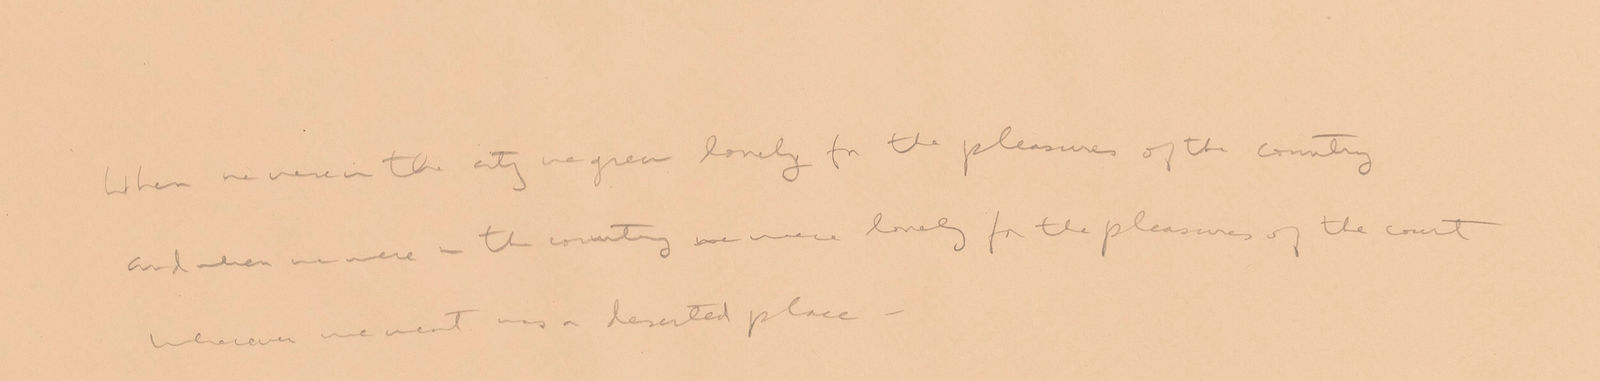 When we were in the city we grew lonely for the pleasures of the country
and when we were in the country we were lonely for the pleasures of the court
wherever we went was a deserted place –